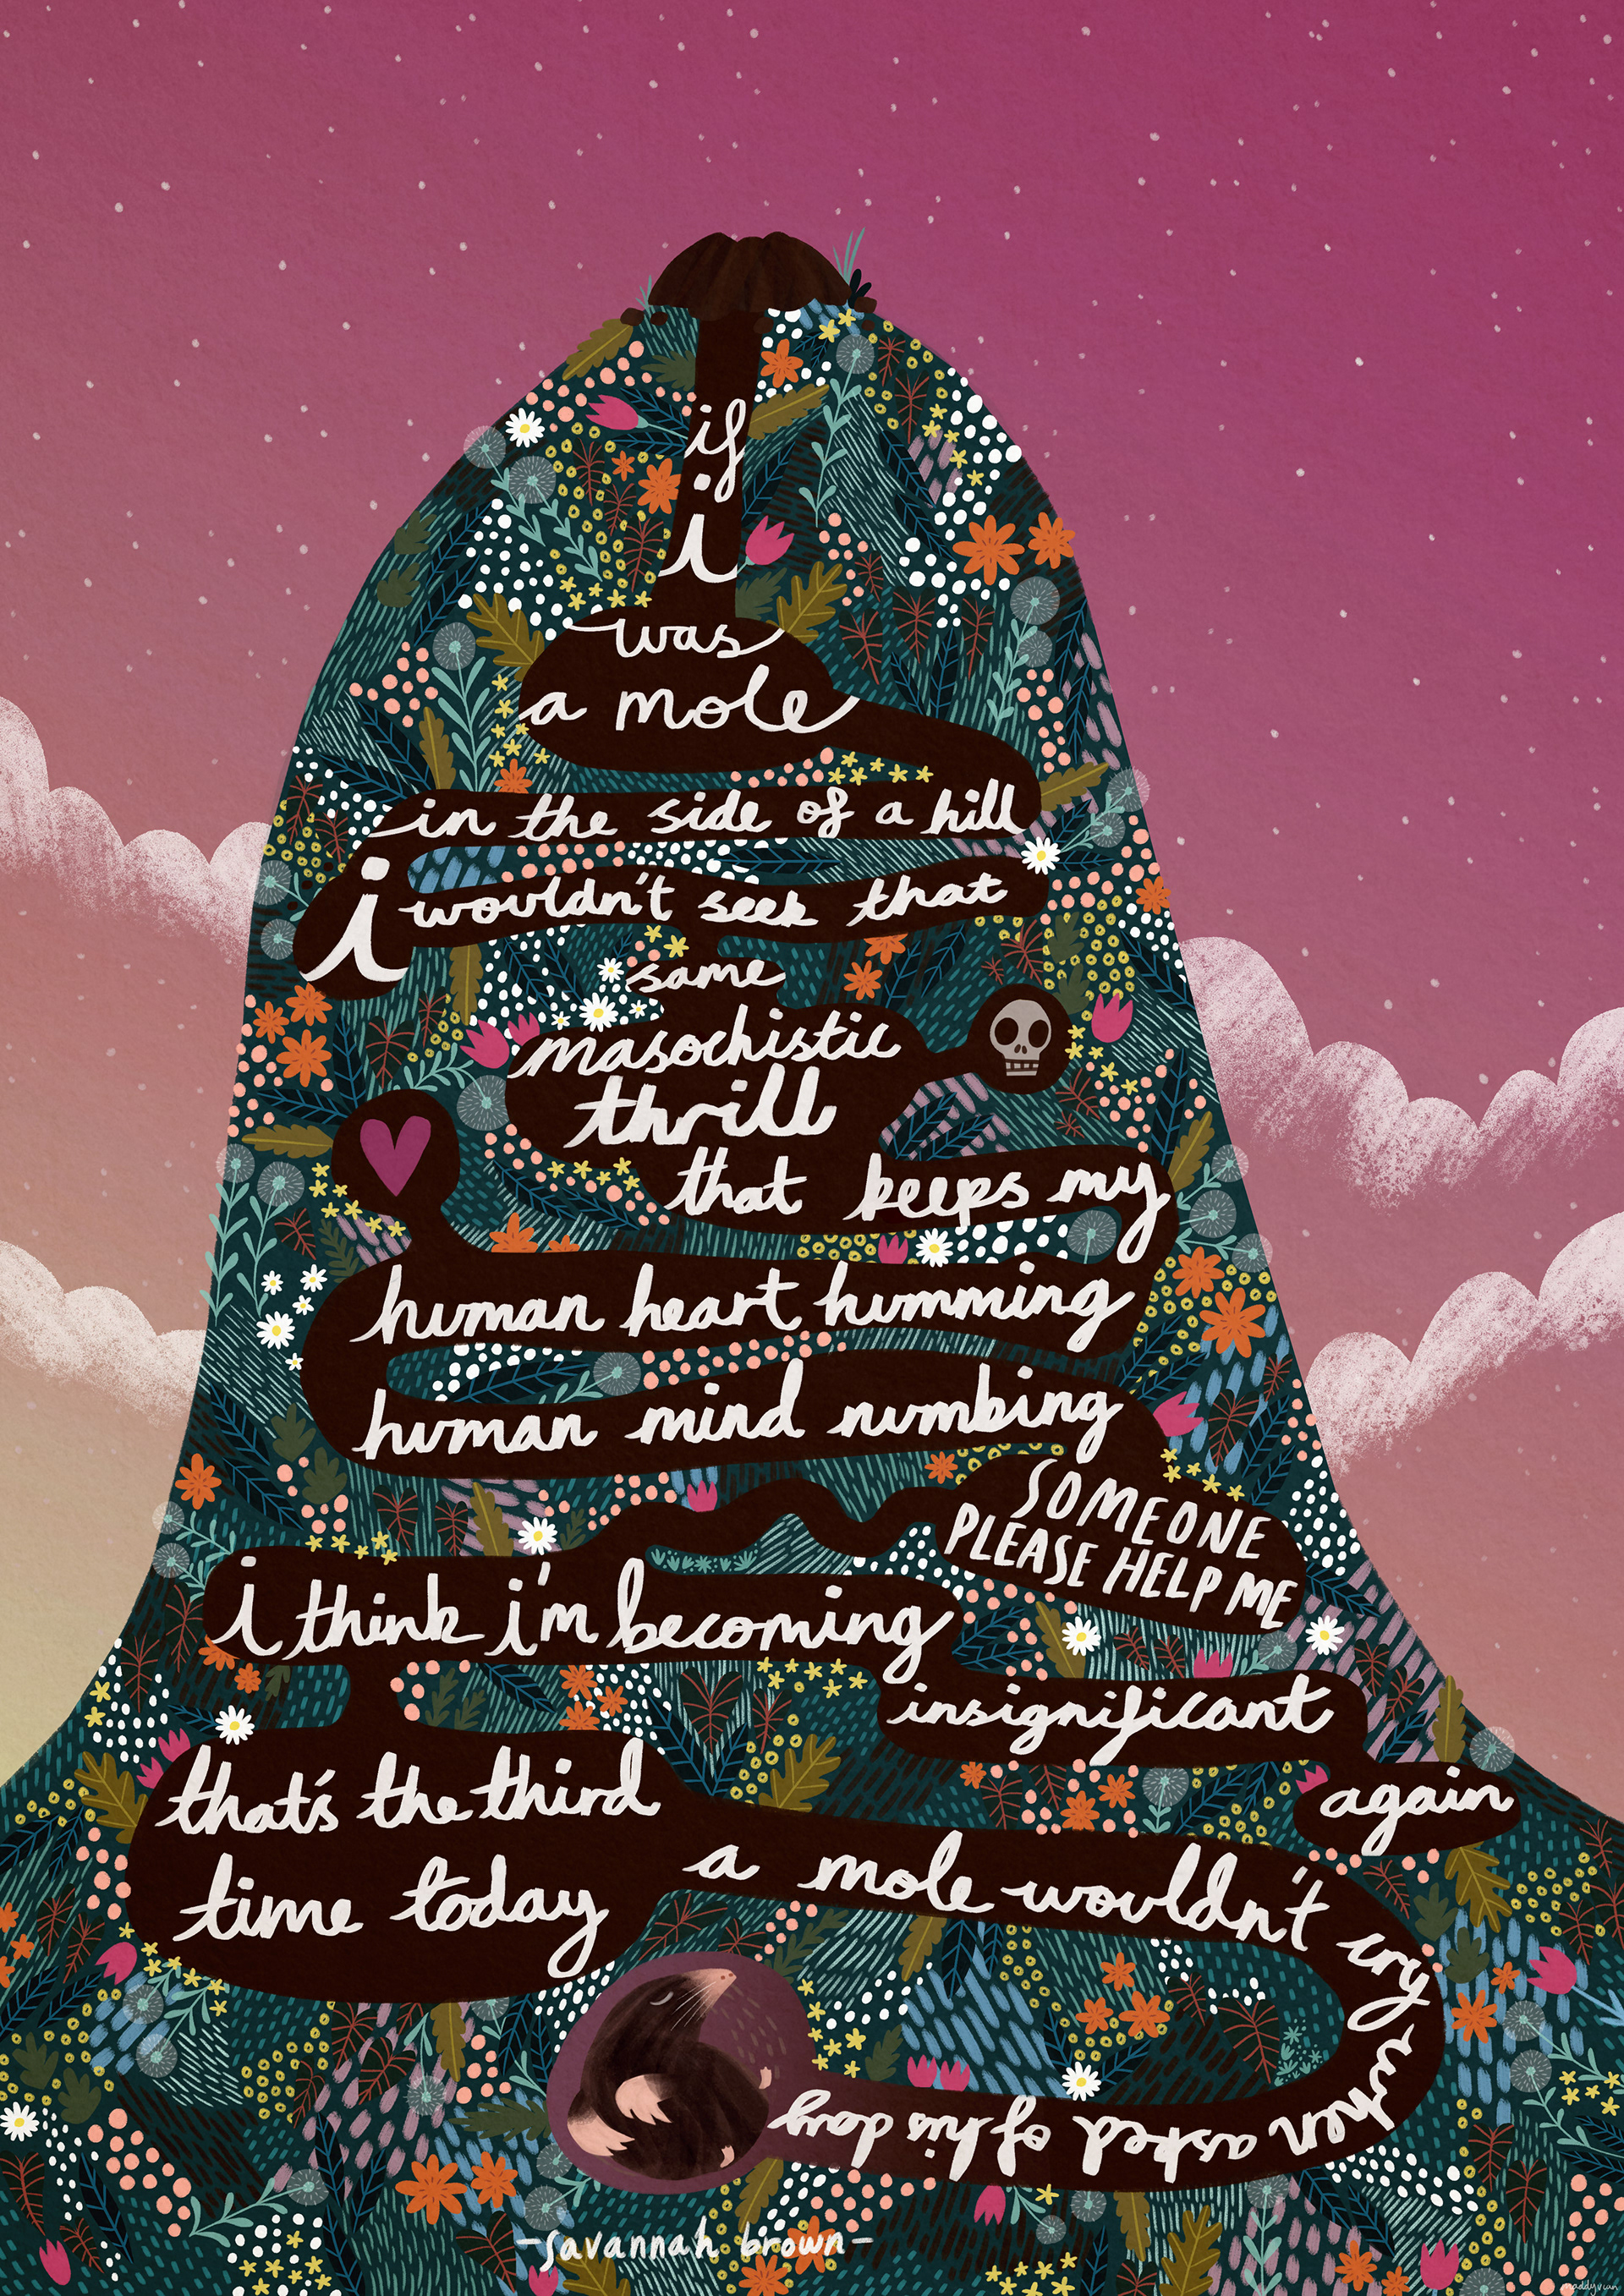 if
i
was
a mole
in the side of a hill
i wouldn't seek that
same
masochistic
thrill
that keeps my
human heart humming
human mind numbing
SOMEONE
PLEASE HELP ME
i think i'm becoming
insignificant
again
that's the third
time today
a mole wouldn't cry when asked of his day
-savannah brown-